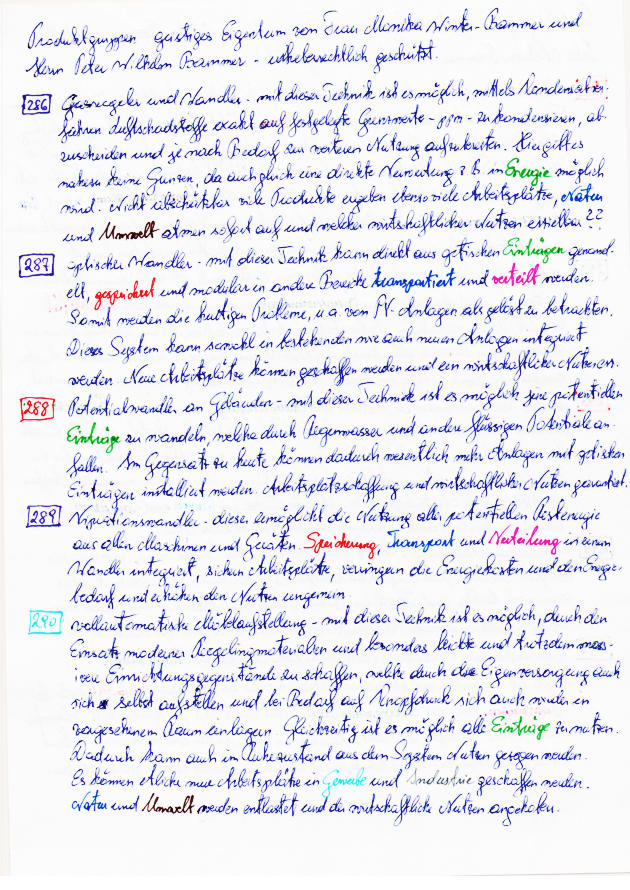 Produktgruppen geistiges Eigentum von Frau Monika Winter-Brammer und
Herrn Peter Wilhelm Brammer - urheberrechtlich geschützt.
286 Gasregeler und Wandler - mit dieser Technik ist es möglich, mittels Kondensatver-
fahren Luftschadstoffe exakt auf festgelegte Grenzwerte - ppm - zu kondensieren, ab-
zuscheiden und je nach Bedarf zur weiteren Nutzung aufzubereiten. Hier gibt es
nahezu keine Grenzen, da auch gleich eine direkte Verwertung z B in Energie möglich
wird. Nicht viele Produkte ergeben ebenso viele Arbeitsplätze, Natur
und Umwelt atmen sofort auf und welcher wirtschaftlicher Nutzen erzielbar ??
287 optischer Wandler - mit dieser Technik kann direkt aus optischen Einträgen gewand-
elt, gespeichert und modular in andere Bereiche transportiert und verteilt werden.
Somit werden die heutigen Probleme, u a. von PV-Anlagen als gelöst zu betrachten.
Dieses System kann sowohl in bestehenden wie auch neuen Anlagen integriert
werden. Neue Arbeitsplätze können geschaffen werden und ein wirtschaftlicher Nutzen.
288 Potentialwandler an Gebäuden - mit dieser Technik ist es möglich jene potentiellen
Einträge zu wandeln, welche durch Regenwasser und andere flüssigen Potentiale an-
fallen. Im Gegensatz zu heute können dadurch wesentlich mehr Anlagen mit optischen
Einträgen installiert werden. Arbeitsplatzschaffung und wirtschaftlicher Nutzen garantiert.
289 Vibrationswandler - dieser ermöglicht die Nutzung aller potentiellen Restenergie
aus allen Maschinen und Geräten. Speicherung, Transport und Verteilung in einem
Wandler integriert, sichern Arbeitsplätze, verringern die Energiekosten und den Energie-
bedarf und erhöhen den Nutzen ungemein.
290 vollautomatische Möbelaufstellung - mit dieser Technik ist es möglich, durch den
Einsatz moderner und besonders leichte und trotzdem mass-
ivere Einrichtungsgegenstände zu schaffen, welche durch die Eigenversorgung auch
sich selbst aufstellen und bei Bedarf auf Knopfdruck sich auch wieder in
vorgesehenem Raum einlagern. Gleichzeitig ist es möglich alle Einträge zu nutzen.
Dadurch kann auch im Ruhezustand aus dem System Nutzen gezogen werden.
Es können etliche neue Arbeitsplätze in Gewerbe und Industrie geschaffen werden.
Natur und Umwelt werden entlastet und der wirtschaftliche Nutzen angehoben.